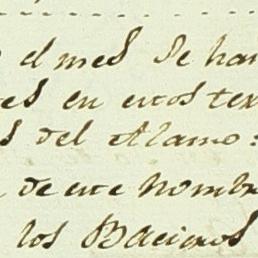 el mes de han
es en estos ter
s del Alamo:
de este nombre
los Baciaros